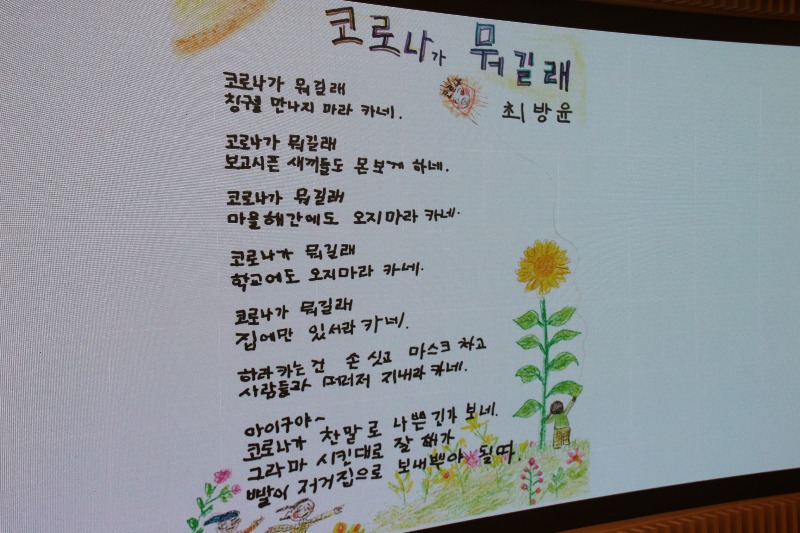 코로나가 뭐길래
최방윤
코로나가 뭐길래
칭구럴 만나지 마라 카네.
코로나가 뭐길래
보고시픈 새끼들도 몬보게 하네.
코로나가 뭐길래
마을해간에도 오지마라 카네.
코로나가 뭐길래
학교에도 오지마라 카네.
코로나가 뭐길래
집에만 있서라 카네.
하라카는건 손 싯고 마스크 차고
사람들과 떠러저 지내라 카네.
아이구야~
코로나가 찬말로 나쁜긴가 보네.
그라마 시킨대로 잘해가
빨이 저거집으로 보내뿌야 될따.